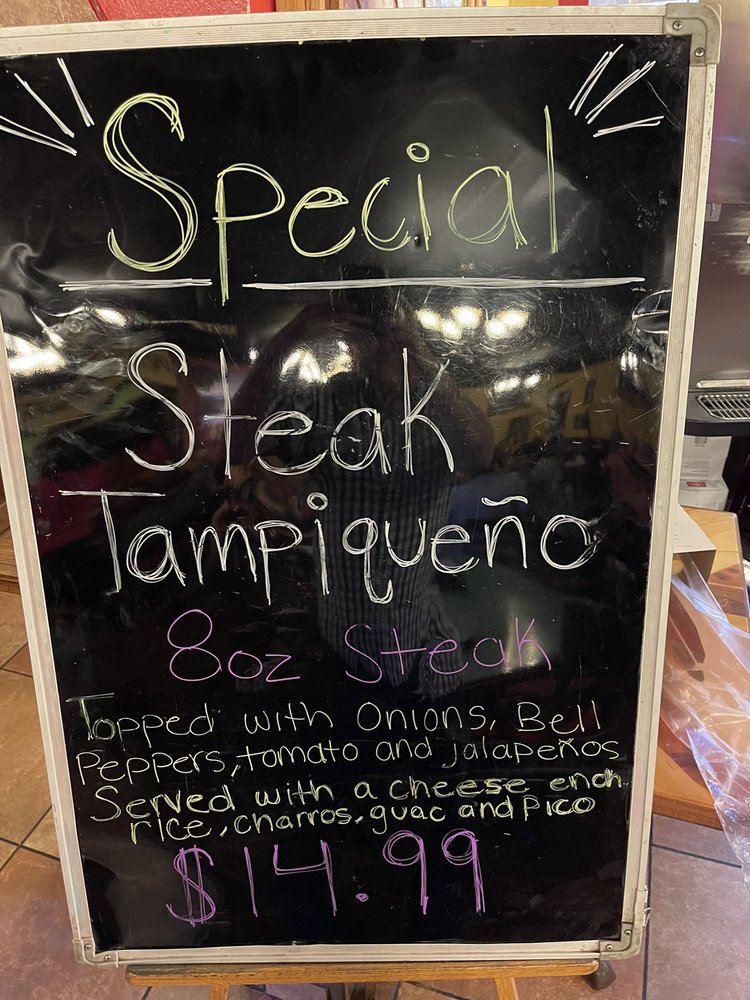 Special
Steak
Tampiqueño
8oz Steak
Topped with Onions, Bell
Peppers, tomato and jalapeños
Served with a cheese ench
rice, charros, guac and pico
$14.99